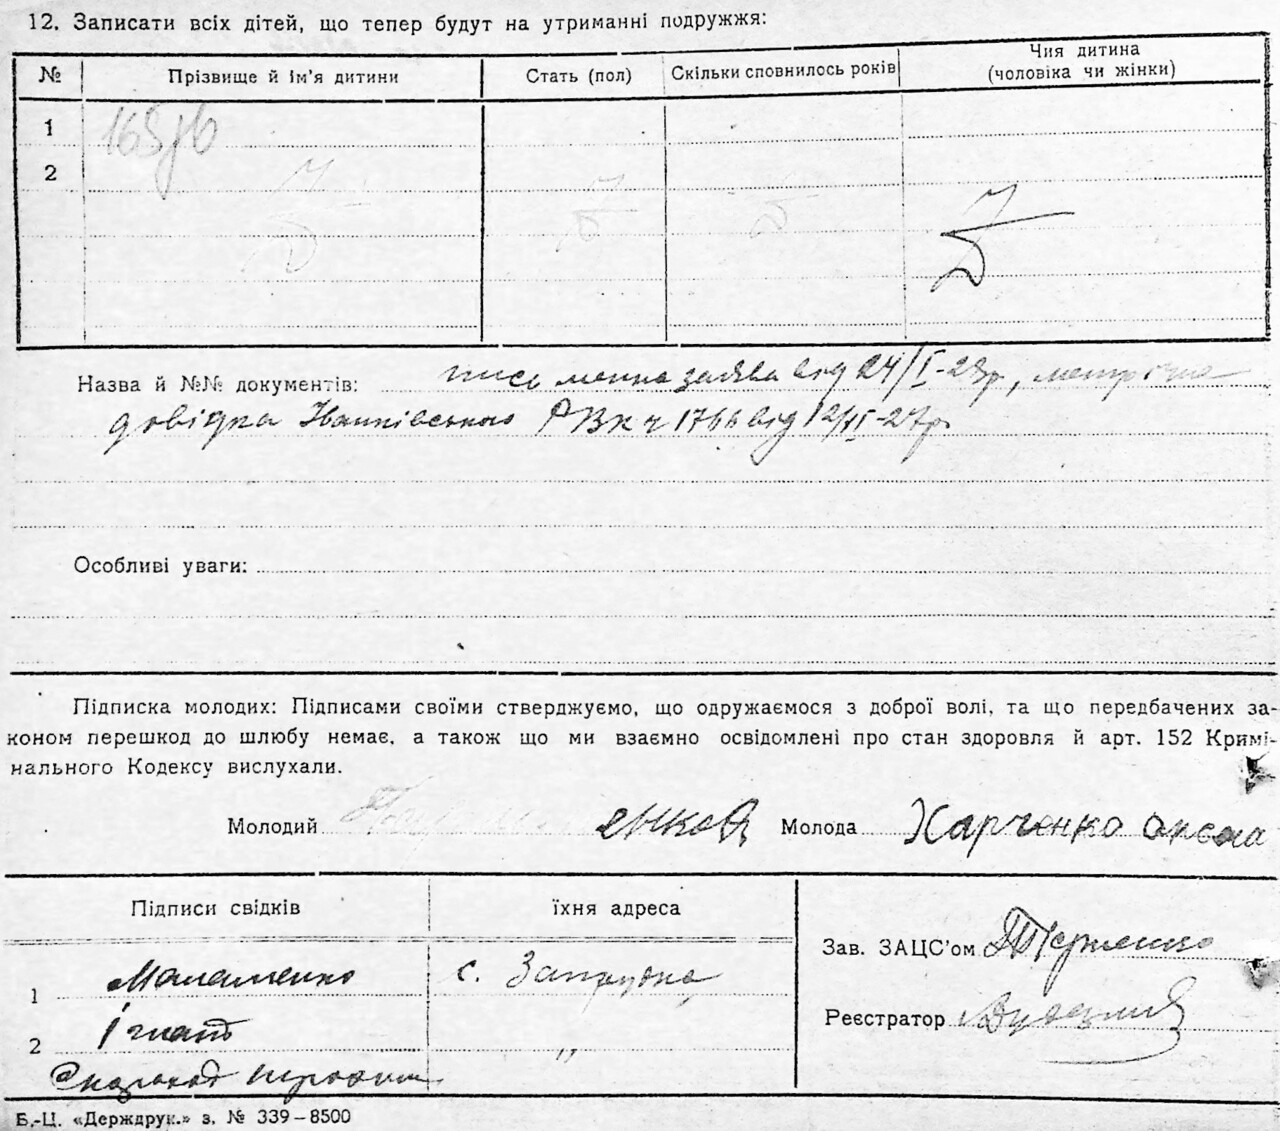 12. Записати всіх дітей, що тепер будут на утриманні подружжя:
№ Прізвище й ім'я дитини Стать (пол) Скільки сповнилось років Чия дитина
(чоловіка чи жінки)
1
2
Назва й №№ документів: письменна заява від 24/I-28р, метрична
довідка Іванківського РВК ч 1766 від 12/XI-27р
Особливі уваги:
Підписка молодих: Підписами своїми стверджуємо, що одружаємося з доброї волі, та що передбачених за-
коном перешкод до шлюбу немає, а також що ми взаємно освідомлені про стан здоровля й арт. 152 Кримі-
нального Кодексу вислухали.
Молодий Молода Харченко
Підписи свідків їхня адреса
Зав. ЗАЦС'ом
1 с. Запрудка
Реєстратор
2 Ігнат "
Б.-Ц. «Держдрук.» з. № 339–8500